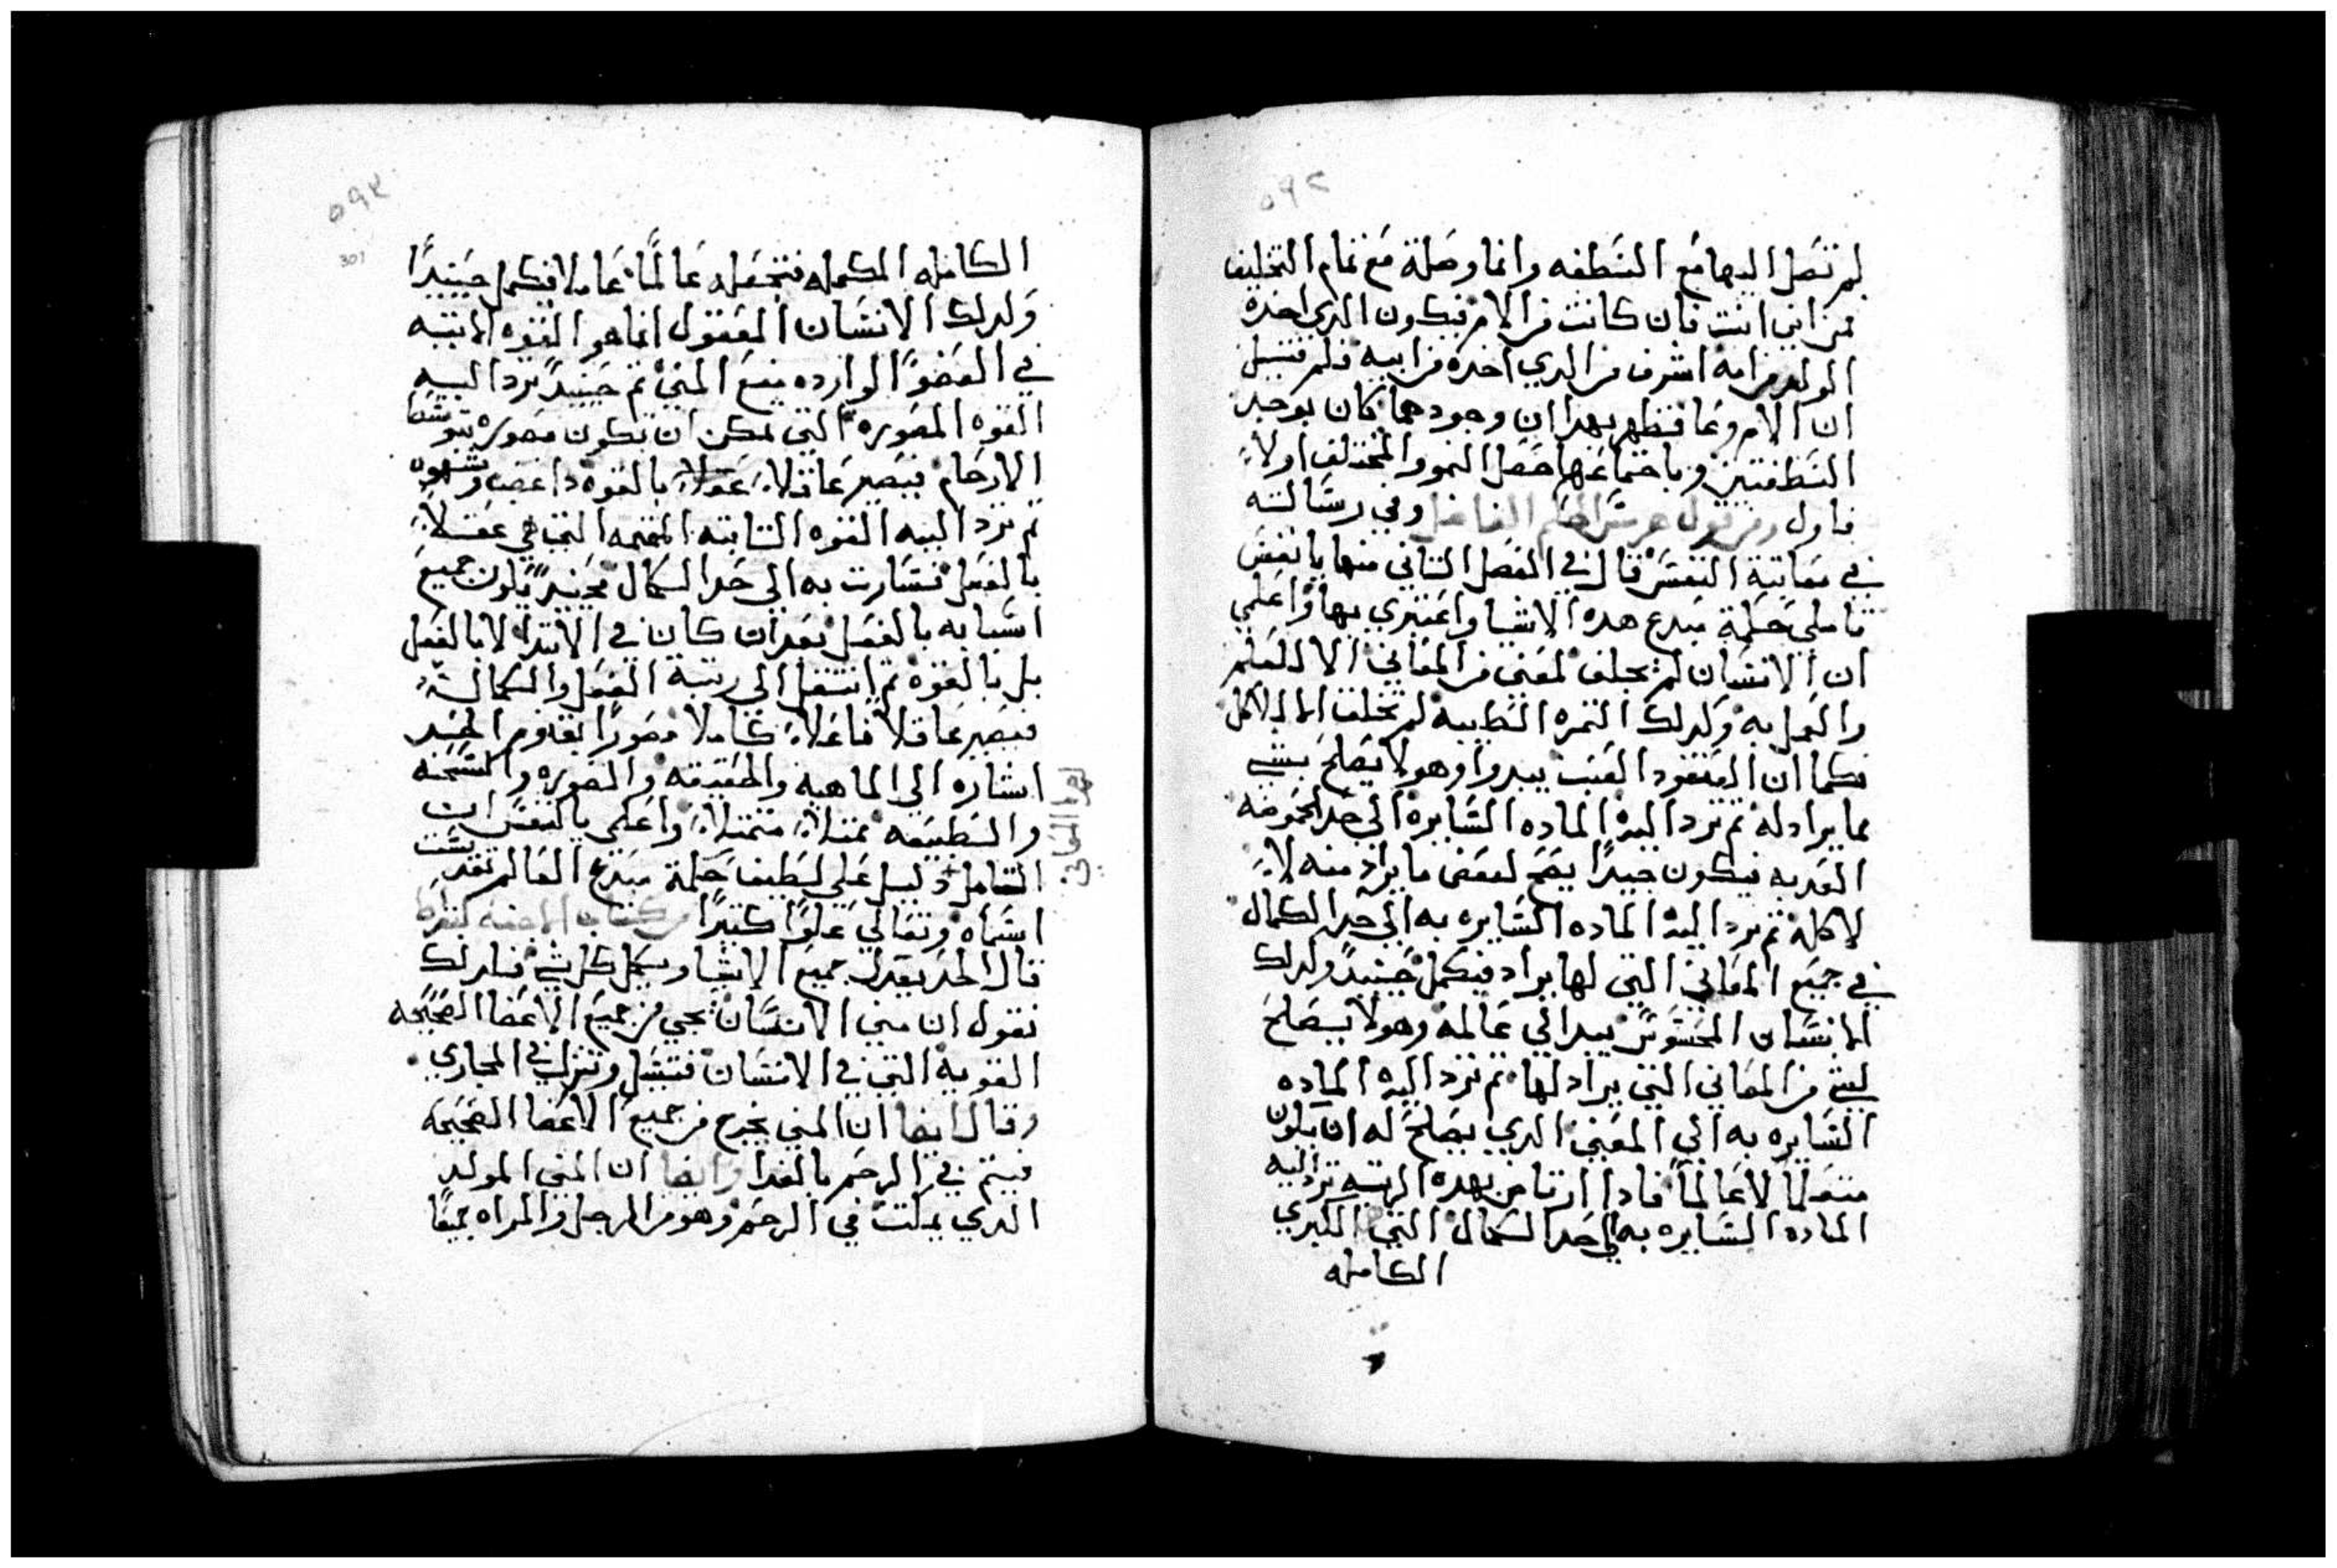 لم تصل اليها مع النطفه وانما وصلة مع تمام التخليف
فمن اين انت فان كانت من الام فيكون الدي اخده
الولد من امه اشرف من الدي اخده من ابيه فلم قتيل
ان الام وعا فظهر بهدا ان وجودهما كان بوجد
النطفتين وباجتماعها حصل النمو والمختلف اولاً
فاول ومن قول هرمس الحكيم الفاضل وفي رسالته
في معاتبة النفس قال في الفصل التاني منها يا نفس
تاملي حكمة مبدع هده الاشيا واعتبري بها واعلمي
ان الانسان لم يخلف لمعني من المعاني الا للعلم
والعمل به وكدلك التمره الطيبه لم تخلف الا للاكل
فكما ان العنقود العنب يبدوا وهو لا يصلح بشي
مما يراد له تم ترد اليه الماده السايره الي حد الحموضه
العدبه فيكون جيداً يصح لبعض ما يراد منه لا
لاكله تم ترد اليه الماده السايره به الي حد الكمال
في جميع المعاني التي لها يراد فيكمل حينيدً وكدلك
الانسان المحسوس يبدا الي عالمه وهو لا يصلح
لشي من المعاني التي يراد لها تم ترد اليه الماده
السايره به الي المعني الدي يصلح له ان يكون
متعلماً لا عالماً فادا ارتاض بهده الرتبه ترد اليه
الماده السايره به الي حد الكمال التي هي الكبري
الكامله
301
الكامله المكمله فتجعله عالماً عاملا فيكمل حينيدًا
وكدلك الانسان المعقول انما هو القوه الاتيه
في العضو الوارده مع المني تم حينيدً ترد اليه
القوه المصوره التي يمكن ان تكون مصوره بتوسط
الارحام فيصير عاقلاً عقلاً بالقوه دا غضب وشهوه
تم ترد اليه القوه التابته المتممه التي هي عقلاً
بالفعل فسارت به الي حد الكمال فحينيدً يكون جميع
اسبابه بالفعل بعد ان كان في الابتدا لا بالفعل
بل بالقوه تم انتقل الي رتبة الفعل والكمال
فيصير عاقلاً فاعلاً كاملا مصورًا بقدوم الجسد
اشاره الي الماهيه والحقيقه والصوره والسحنه
والطبيعه ممتلاً متمتلاً واعلمي يا نفس ان
التامل دليل علي لطيف حكمة مبدع العالم تقدست
اسماه وتعالي علوًا كتيرًا من كتاب الاجنه لبقراط
قال الحد يعدل جميع الاشيا ويكمل كل شي فلدلك
نقول ان مني الانسان يجي من جميع الاعضا الصحيحه
القويه التي في الانسان فتسيل وتنزل في المجاري
وقال ايضا ان المني يخرج من جميع الاعضا الصحيحه
فيتم في الرحم بالغدا وايضا ان المني المولد
الدي يمكت في الرحم وهو من الرجل والمراه جميعًا